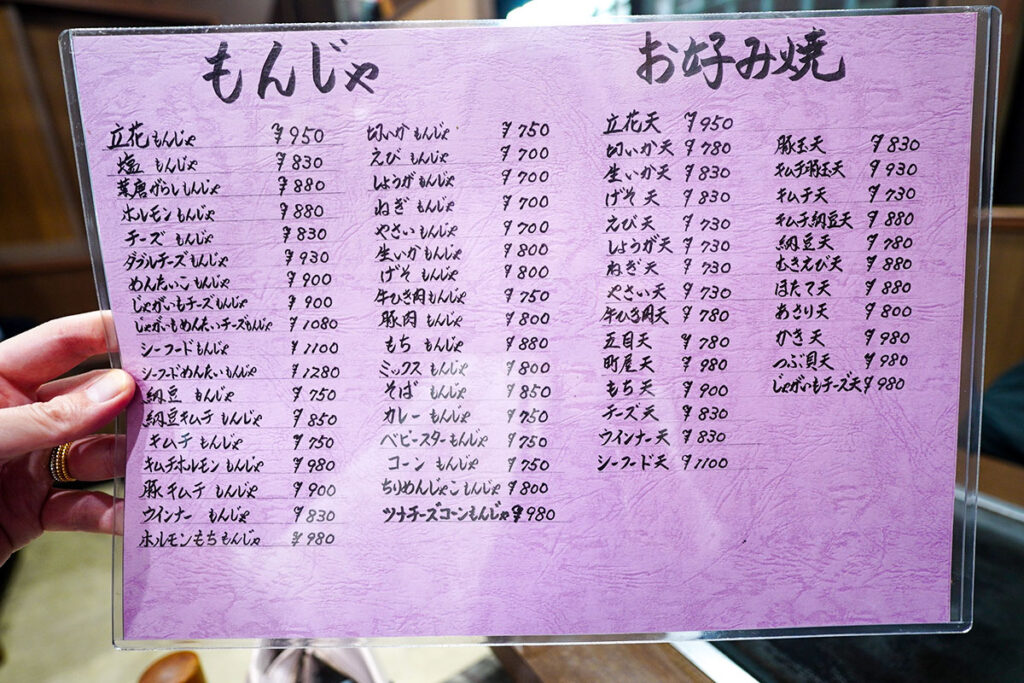 もんじゃ
立花もんじゃ ¥950
塩もんじゃ ¥830
葉唐がらしもんじゃ ¥880
ホルモンもんじゃ ¥880
チーズもんじゃ ¥830
ダブルチーズもんじゃ ¥930
めんたいこもんじゃ ¥900
じゃがいもチーズもんじゃ ¥900
じゃがいもめんたいチーズもんじゃ ¥1080
シーフードもんじゃ ¥1100
シーフードめんたいもんじゃ ¥1280
納豆もんじゃ ¥750
納豆キムチもんじゃ ¥850
キムチもんじゃ ¥750
キムチホルモンもんじゃ ¥980
豚キムチもんじゃ ¥900
ウインナーもんじゃ ¥830
ホルモンもちもんじゃ ¥980
切いかもんじゃ ¥750
えびもんじゃ ¥700
しょうがもんじゃ ¥700
ねぎもんじゃ ¥700
やさいもんじゃ ¥700
生いかもんじゃ ¥800
げそもんじゃ ¥800
牛ひき肉もんじゃ ¥750
豚肉もんじゃ ¥800
もちもんじゃ ¥880
ミックスもんじゃ ¥800
そばもんじゃ ¥850
カレーもんじゃ ¥750
ベビースターもんじゃ ¥750
コーンもんじゃ ¥750
ちりめんじゃこもんじゃ ¥800
ツナチーズコーンもんじゃ ¥980
お好み焼
立花天 ¥950
切いか天 ¥780
生いか天 ¥830
げそ天 ¥830
えび天 ¥730
しょうが天 ¥730
ねぎ天 ¥730
やさい天 ¥730
牛ひき肉天 ¥780
五目天 ¥780
町屋天 ¥980
もち天 ¥900
チーズ天 ¥830
ウインナー天 ¥830
シーフード天 ¥1100
豚玉天 ¥830
キムチ豚玉天 ¥930
キムチ天 ¥730
キムチ納豆天 ¥880
納豆天 ¥780
むきえび天 ¥880
ほたて天 ¥880
あさり天 ¥800
かき天 ¥980
つぶ貝天 ¥980
じゃがいもチーズ天 ¥980